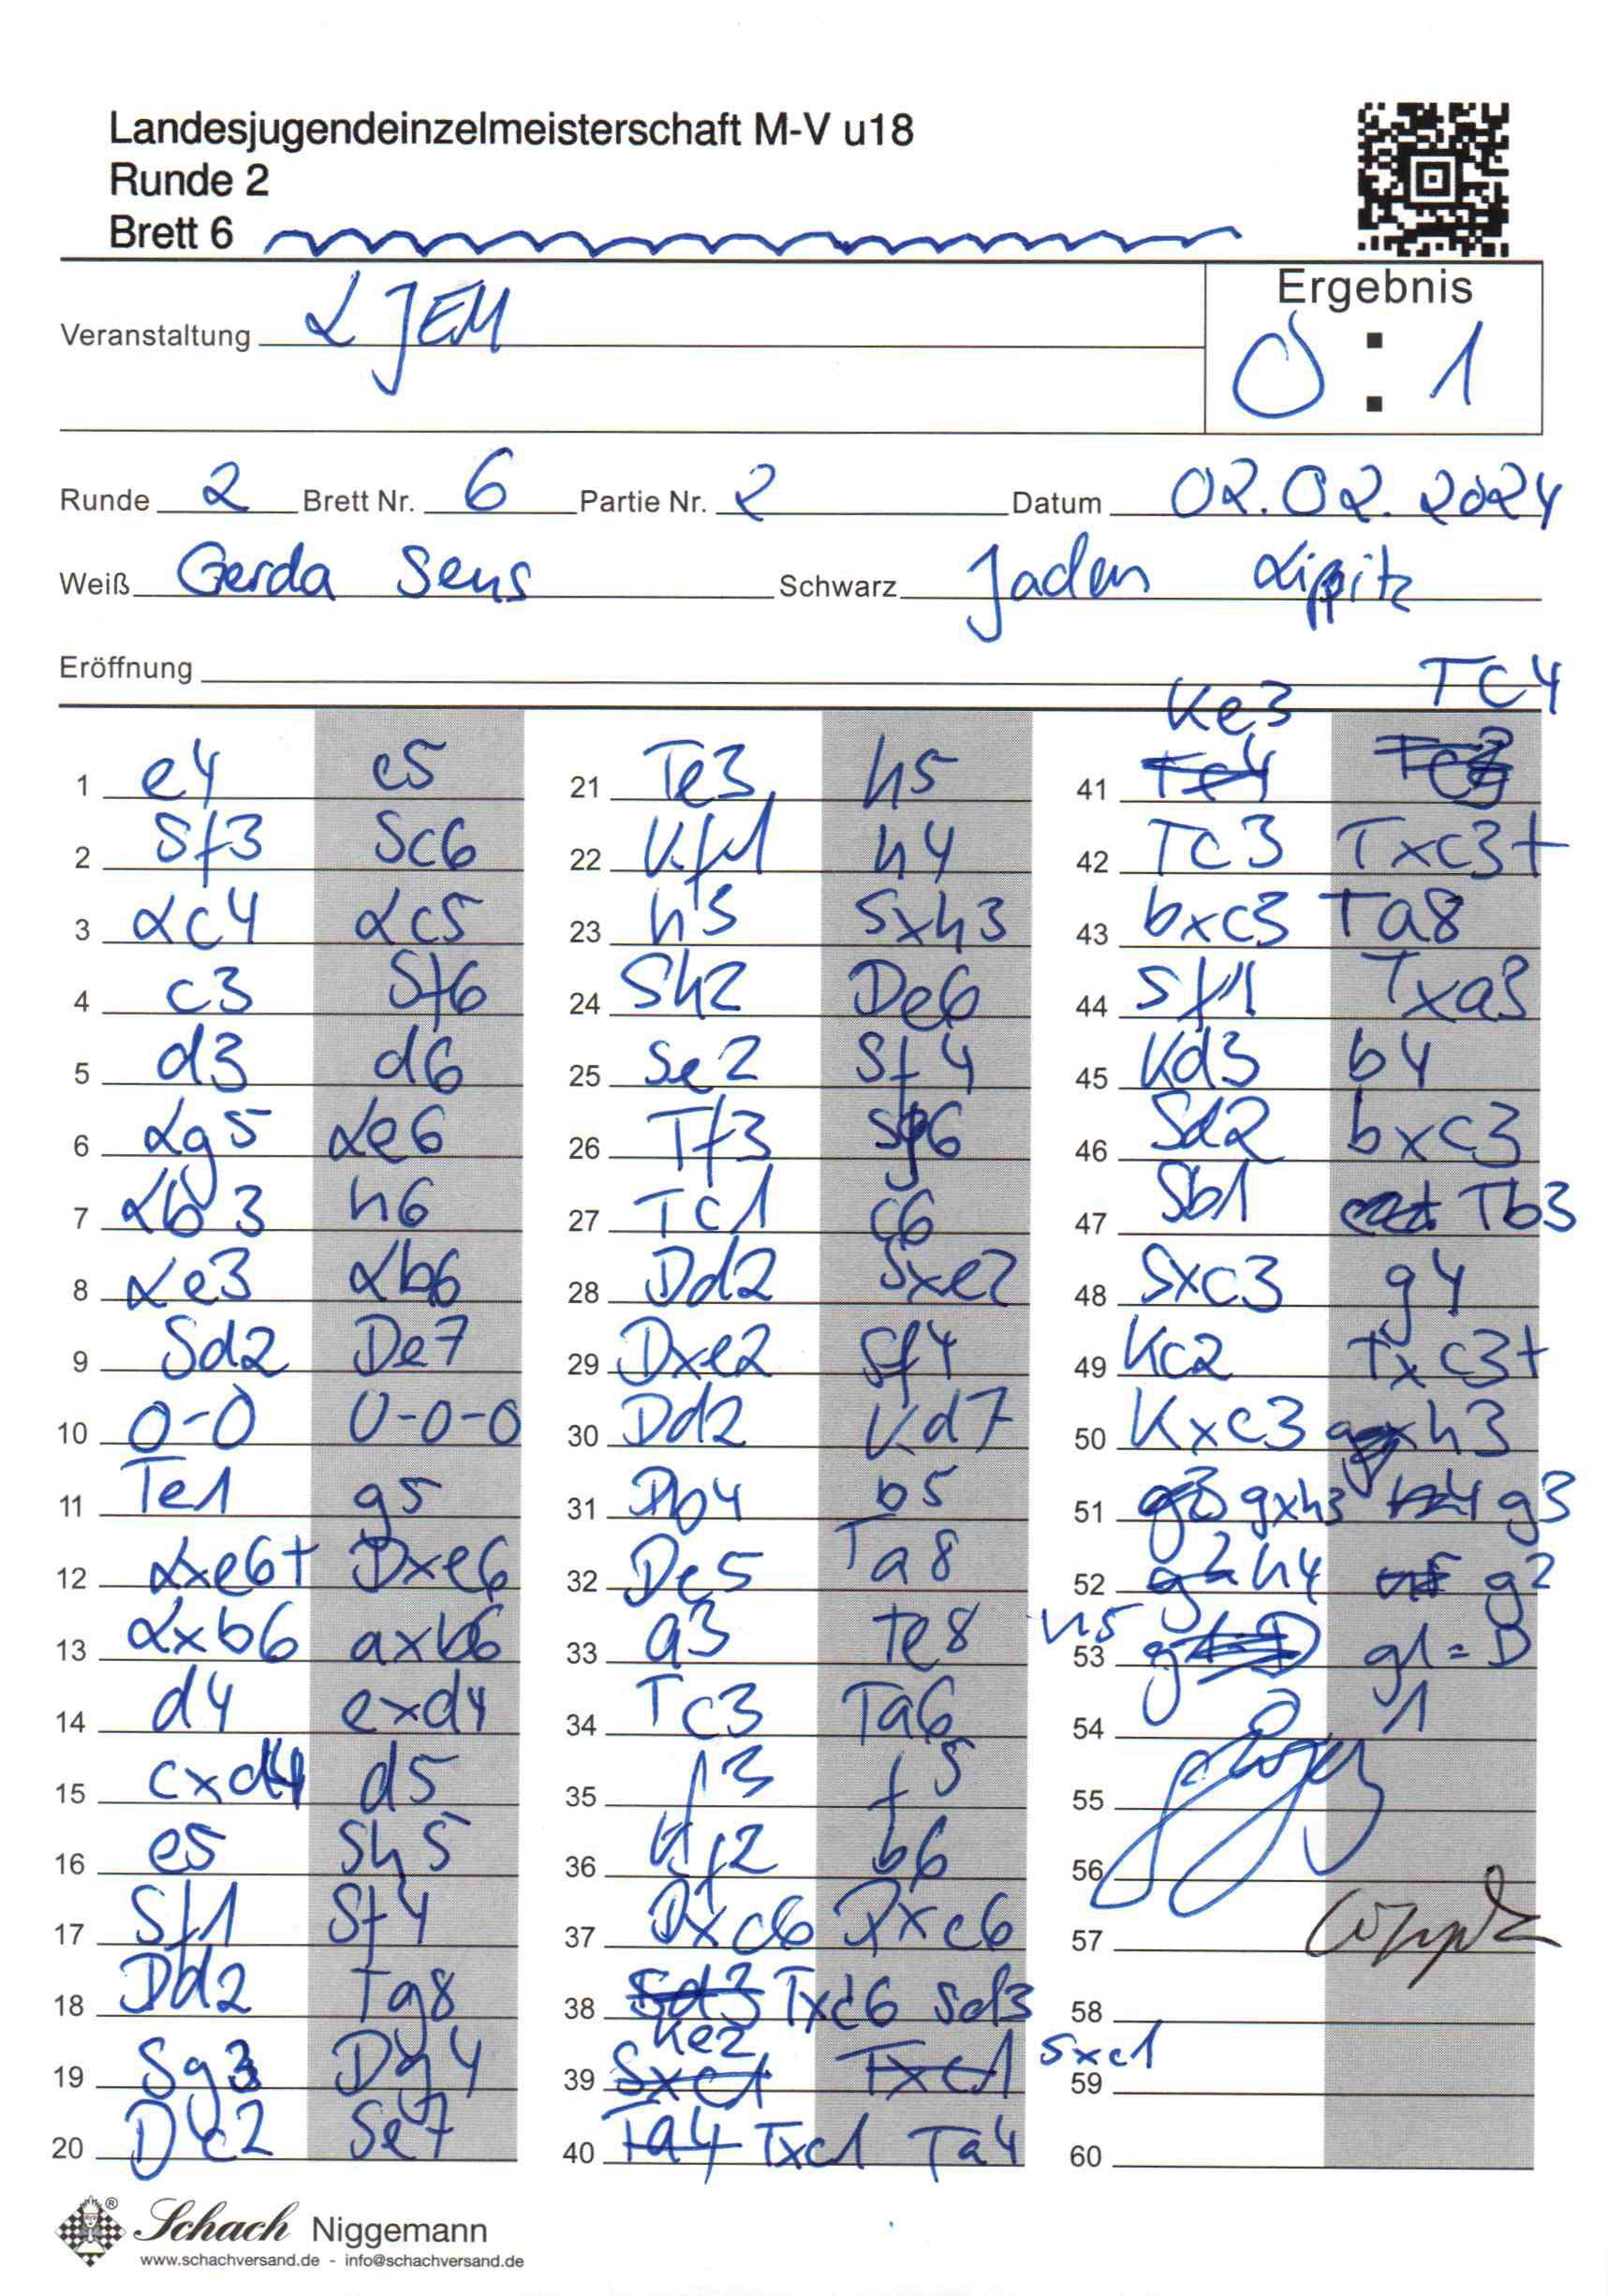 Landesjugendeinzelmeisterschaft M-V u18
Runde 2
Brett 6
Ergebnis
Veranstaltung LJEM
0 : 1
Runde 2 Brett Nr. 6 Partie Nr. 2 Datum 02.02.2024
Weiß Gerda Sens Schwarz Jaden Lippitz
Eröffnung
1 e4 e5
2 Sf3 Sc6
3 Lc4 Lc5
4 c3 Sf6
5 d3 d6
6 Lg5 Le6
7 Lb3 h6
8 Le3 Lb6
9 Sd2 De7
10 0-0 0-0-0
11 Te1 g5
12 Lxe6+ Dxe6
13 Lxb6 axb6
14 d4 exd4
15 cxd4 d5
16 e5 Sh5
17 Sf1 Sf4
18 Dd2 Tg8
19 Sg3 Dg4
20 Dc2 Se7
21 Te3 h5
22 Kf1 h4
23 h3 Sxh3
24 Sh2 De6
25 Se2 Sf4
26 Tf3 Sg6
27 Tc1 c6
28 Dd2 Sxe2
29 Dxe2 Sf4
30 Dd2 Kd7
31 Db4 b5
32 Dc5 Ta8
33 a3 Te8
34 Tc3 Ta6
35 f3 f5
36 Kf2 b6
37 Dxc6 Dxc6
38 Sd3 Txc6 Sd3
39 Sxc1 Ke2 Txc1 Sxc1
40 Ta4 Txc1 Ta4
Ke3 Tc4
41 Tc4
42 Tc3 Txc3+
43 bxc3 Ta8
44 Sf1 Txa3
45 Kd3 b4
46 Sd2 bxc3
47 Sb1 Tb3
48 Sxc3 g4
49 Kc2 Txc3+
50 Kxc3 gxh3
51 g3 gxh3 g3
52 g2 h4 g2
53 h5 g1=D
54
55
56
57
58
59
60
Schach Niggemann
www.schachversand.de - info@schachversand.de